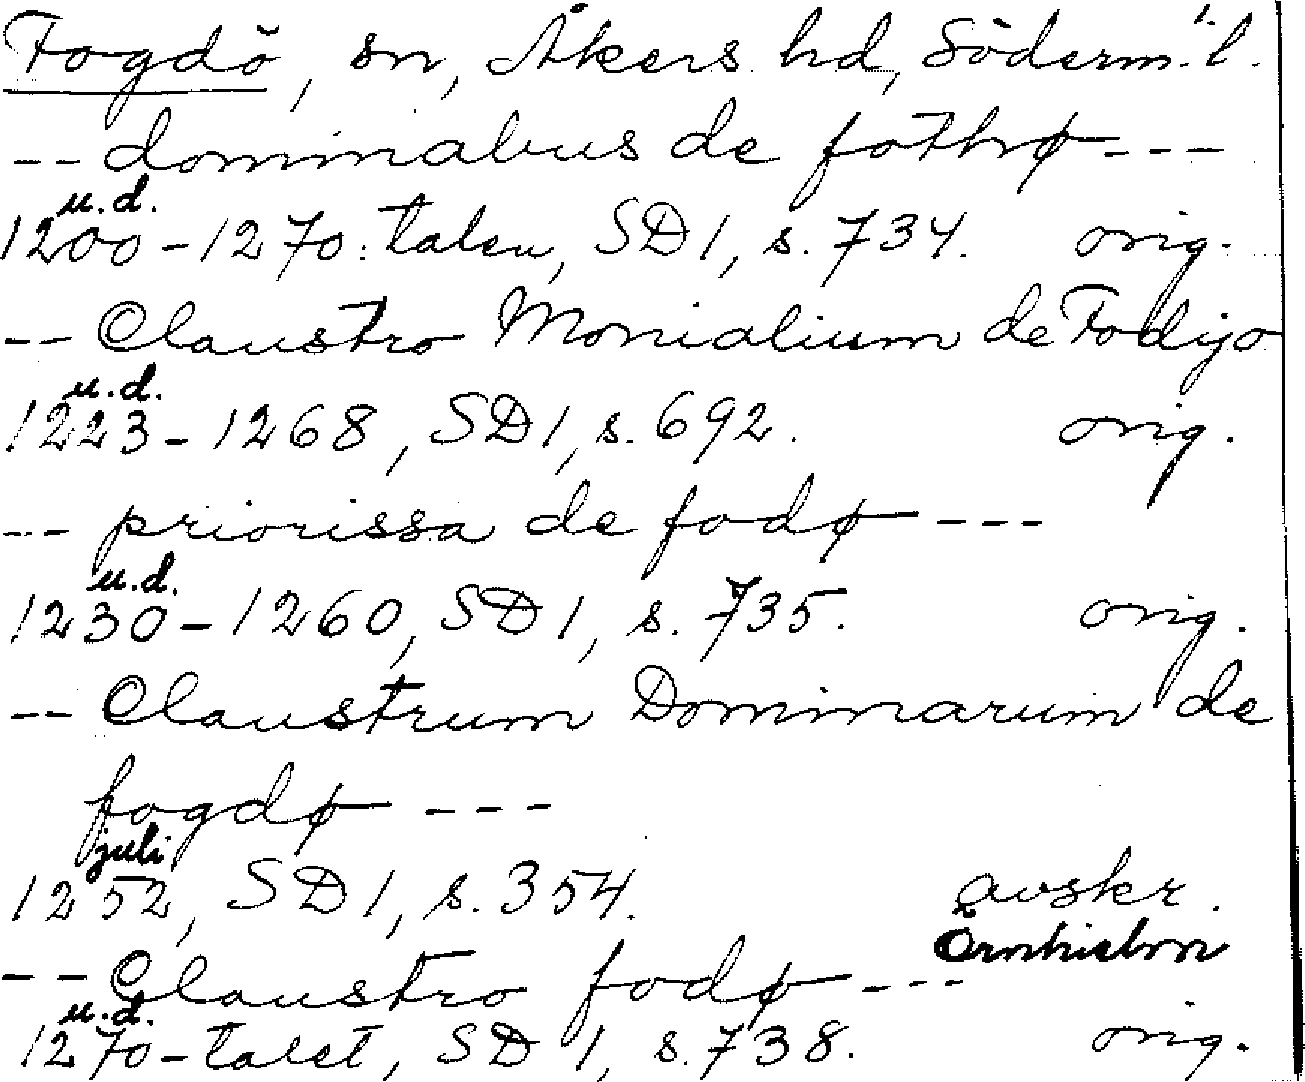 Fogdö, sn, Åkers hd, Söderm. l.
-- dominabus de fothø ---
u.d.
1200-1270. talen, SD 1, s. 734. orig.
-- Claustro Monialium de Fodijo
u.d.
1223-1268, SD 1, s. 692. orig.
-- priorissa de fodø ---
u.d.
1230-1260, SD 1, s. 735. orig.
-- Claustrum Dominarum de
fogdø ---
juli
1252, SD 1, s. 354. avskr.
Örnhielm
-- Claustro fodø ---
u.d.
1270-talet, SD 1, s. 738. orig.